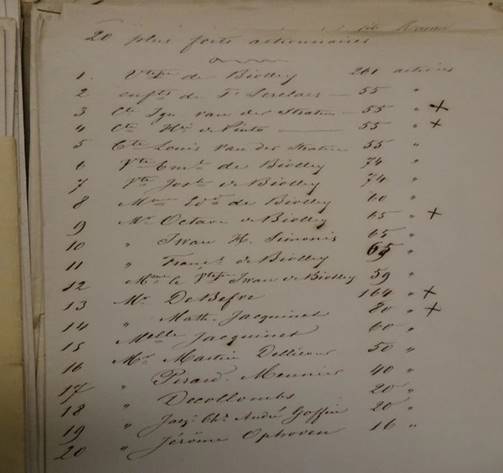 20 plus forts actionnaires
1. Vtesse de Biolley 261 actions
2 enfts de Fs Lerclaes — 55 "
3 Cte Ign van der Straten — 55 " +
4 Cte Hri de Pinto — 55 " +
5 Cte Louis van der Straten 55 "
6 Vte Emle de Biolley 74 "
7 Vte Josh de Biolley 74 "
8 Mme Edd de Biolley 60 "
9 Mr Octave de Biolley 65 " +
10 " Iwan H. Simonis 65 "
11 " Franc. de Biolley 65 "
12 Mme la Vtesse Iwan de Biolley 59 "
13 Mr DeBefve 164 " +
14 " Math. Jacquinet 80 " +
15 Melle Jacquinet 60 "
16 Mr Martin Dellicour 50 "
17 " Pirard. Meunier 40 "
18 " Decollombs 20 "
19 " Jacq. Chs André Goffin 20 "
20 " Jérôme Ophoven 16 "